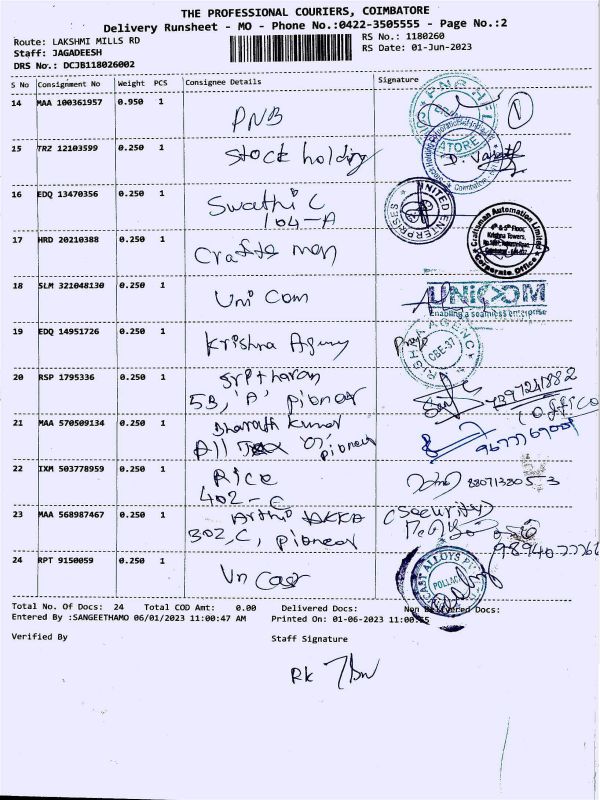 THE PROFESSIONAL COURIERS, COIMBATORE
Delivery Runsheet - MO - Phone No.:0422-3505555 - Page No.:2
Route: LAKSHMI MILLS RD
RS No.: 1180260
Staff: JAGADEESH
RS Date: 01-Jun-2023
DRS No.: DCJB118026002
S No Consignment No Weight PCS Consignee Details Signature
14 MAA 100361957 0.950 1 PNB
15 TRZ 12103599 0.250 1 Stock holding
16 EDQ 13470356 0.250 1 Swathi C
104-A
UNITED ENTERPRISES
17 HRD 20210388 0.250 1 Crafts man
Craftsman Automation Limited
4th & 5th Floor,
Krishna Towers,
Corporate Office
18 SLM 321048130 0.250 1 Uni Com
UNICOM
Enabling a seamless enterprise
19 EDQ 14951726 0.250 1 Krishna Agency
CBE-37
20 RSP 1795336 0.250 1 Sritharan
5B, 'A' pioneer
7397241882
(office)
21 MAA 570509134 0.250 1 Bharath Kumar
pioneer
22 IXM 503778959 0.250 1 Rice
402-C
8807138053
23 MAA 568987467 0.250 1
302, C, pioneer
(Security)
24 RPT 9150059 0.250 1 Un Cast
Total No. Of Docs: 24 Total COD Amt: 0.00 Delivered Docs: Non Delivered Docs:
Entered By :SANGEETHAMO 06/01/2023 11:00:47 AM Printed On: 01-06-2023 11:00:55
Verified By Staff Signature